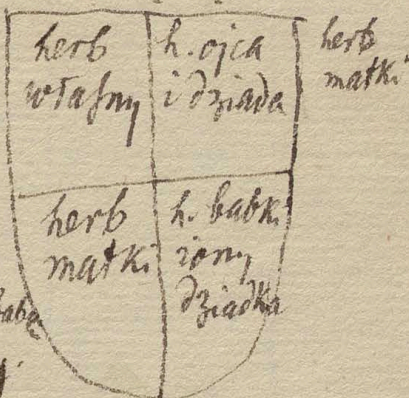 herb
własny
h. ojca
i dziada
herb
matki
herb
matki
h. babki
żony
dziadka